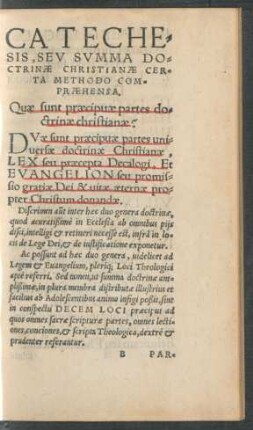 CATECHE-
SIS, SEV SVMMA DO-
CTRINÆ CHRISTIANÆ CER-
TA METHODO COM-
PRÆHENSA.
Quæ sunt præcipuæ partes do-
ctrinæ christianæ?
DVæ sunt præcipuæ partes uni-
uersæ doctrinæ Christianæ,
LEX seu præcepta Decalogi, Et
EVANGELION seu promis-
sio gratiæ Dei & uitæ æternæ pro-
pter Christum donandæ.
Discrimen aũt inter hæc duo genera doctrinæ,
quod accuratissimè in Ecclesia ab omnibus pijs
disci, intelligi & retineri necesse est, infrà in lo-
cis de Lege Dei, & de iustificatione exponetur.
Ac possunt ad hæc duo genera, uidelicet ad
Legem & Euangelium, pleriq; Loci Theologici
aptè referri. Sed tamen, ut summa doctrinæ am-
plissimæ, in plura membra distributa illustrius et
facilius ab Adolescentibus animo infigi possit, sint
in conspectu DECEM LOCI præcipui ad
quos omnes sacræ scripturæ partes, omnes lectio-
nes, conciones, & scripta Theologica, dextrè &
prudenter referantur.
B PAR-